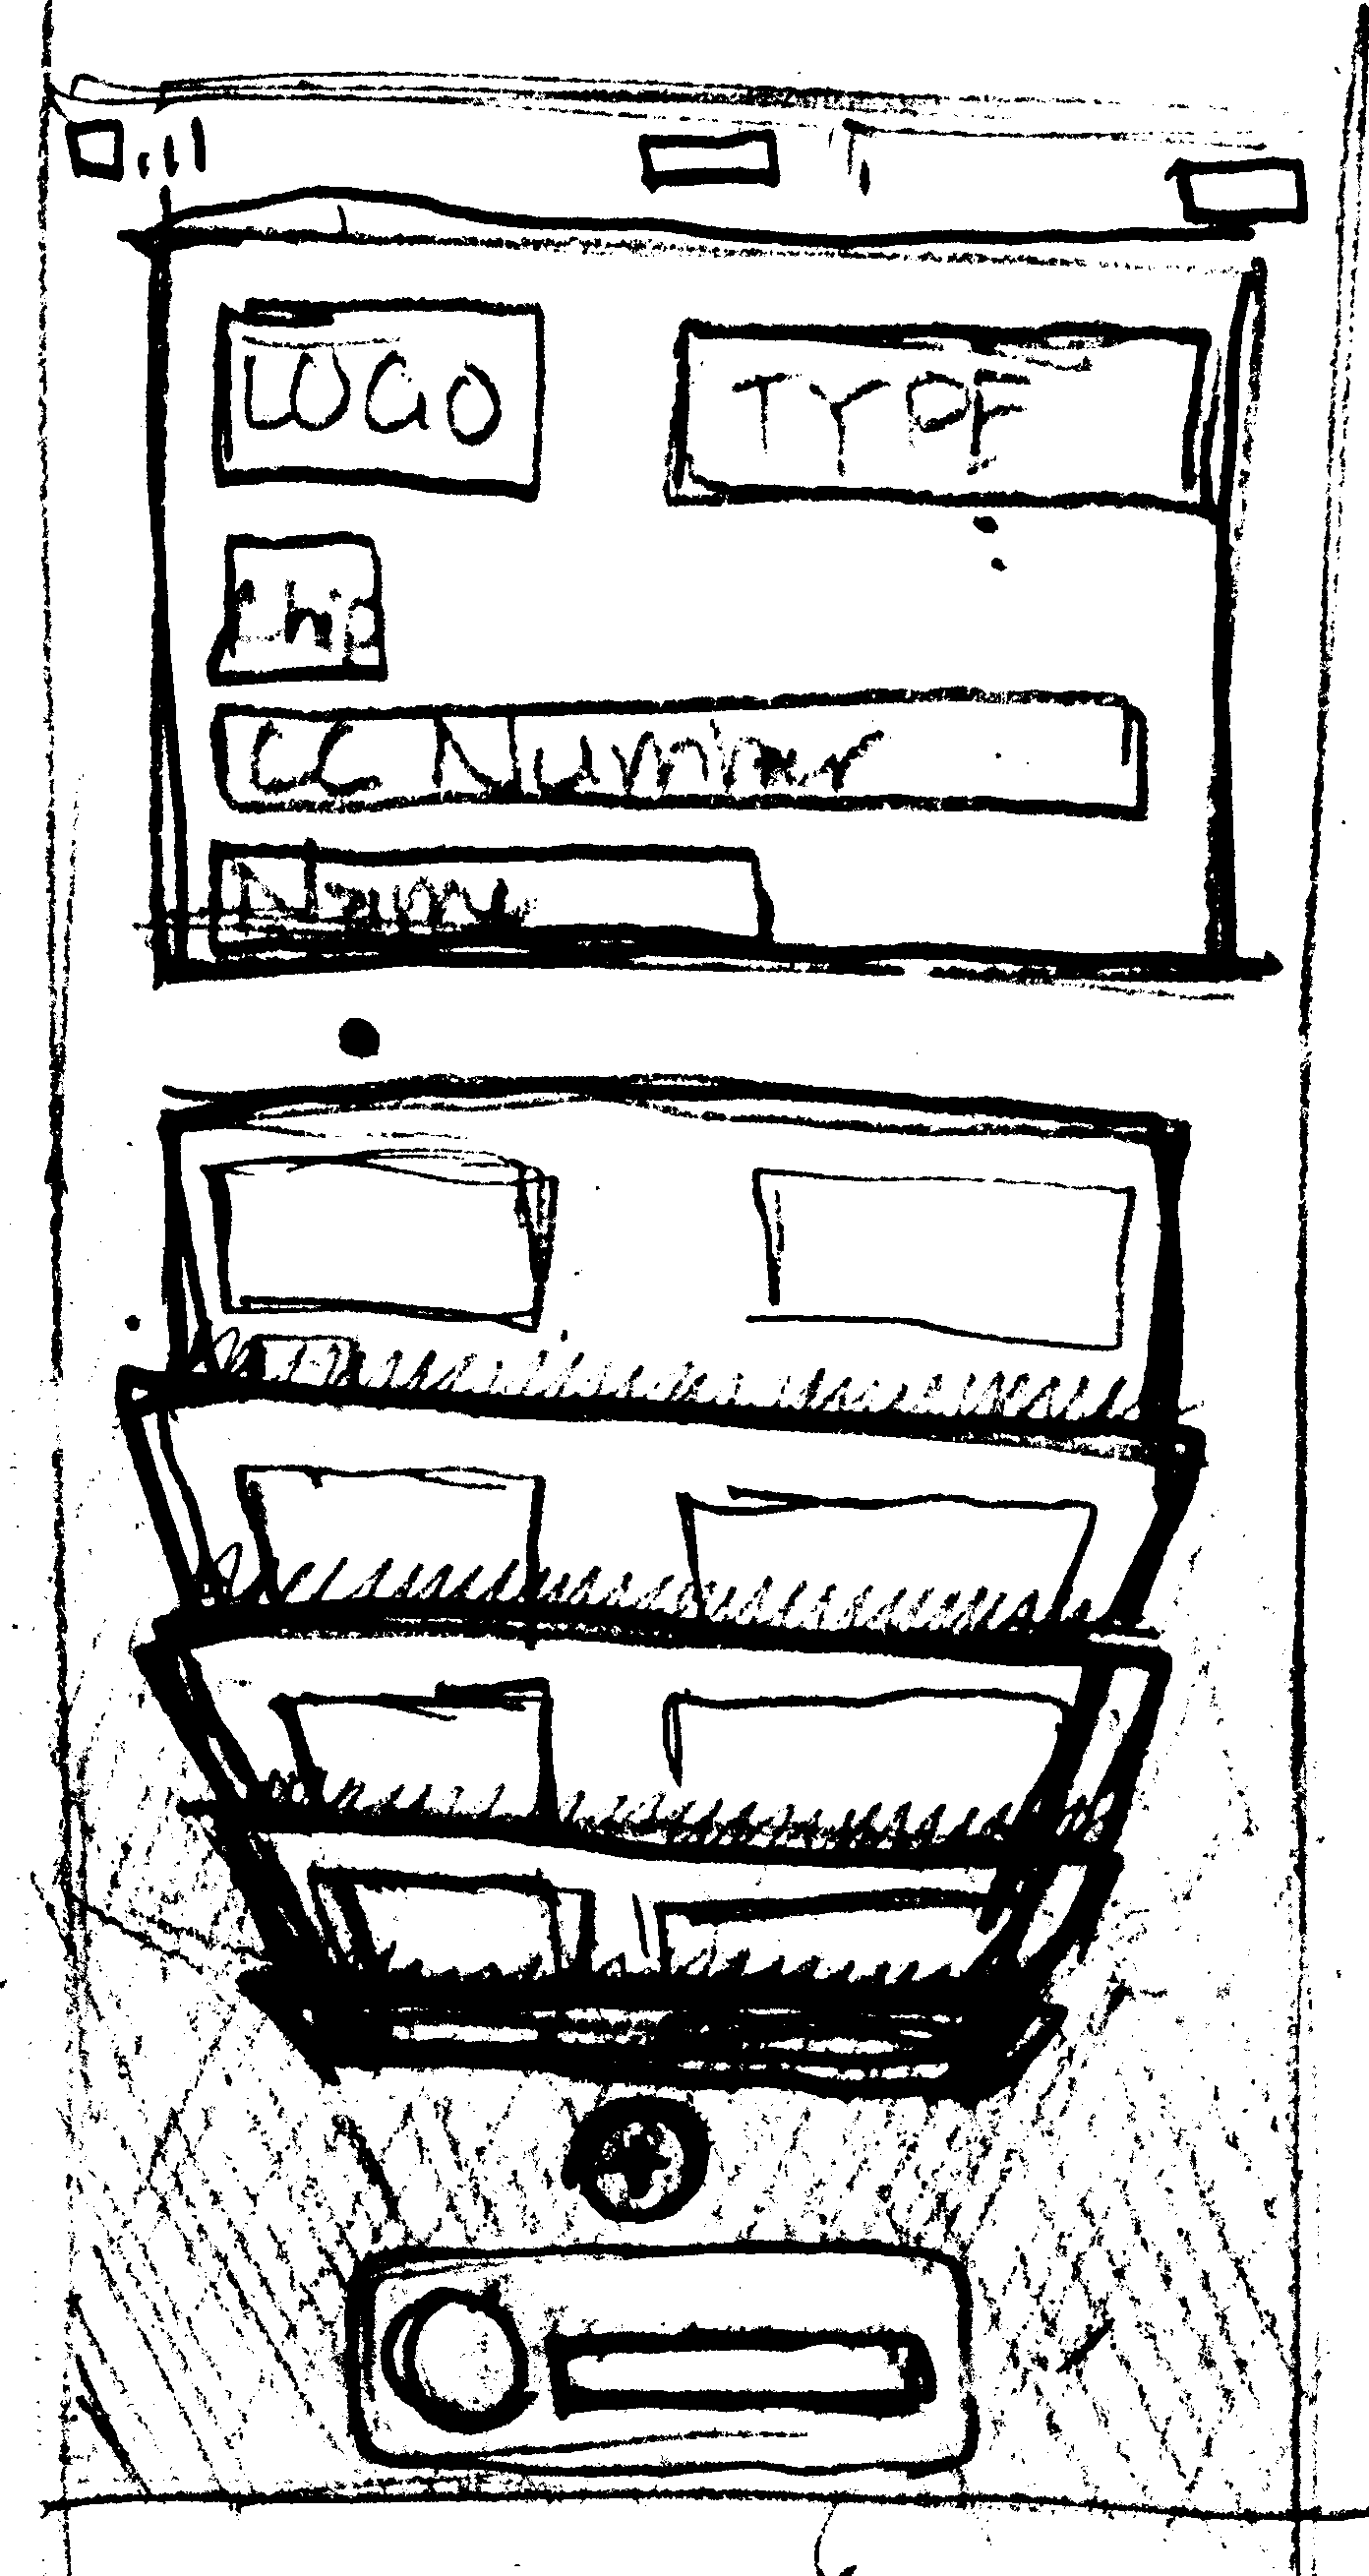 LOGO
TYPE
Chip
CC Number
Name